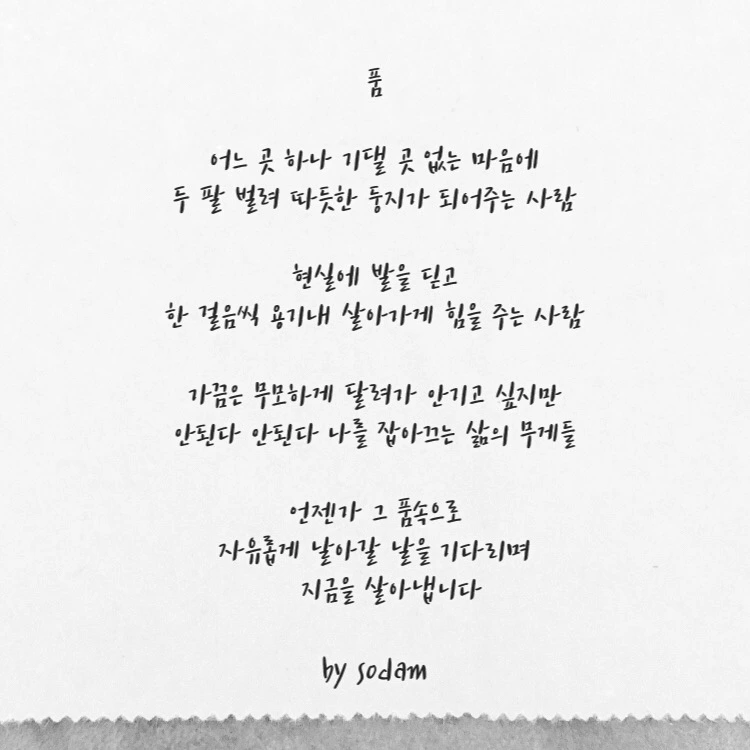 품
어느 곳 하나 기댈 곳 없는 마음에
두 팔 벌려 따듯한 둥지가 되어주는 사람
현실에 발을 딛고
한 걸음씩 용기내 살아가게 힘을 주는 사람
가끔은 무모하게 달려가 안기고 싶지만
안된다 안된다 나를 잡아끄는 삶의 무게들
언젠가 그 품속으로
자유롭게 날아갈 날을 기다리며
지금을 살아냅니다
by sodam